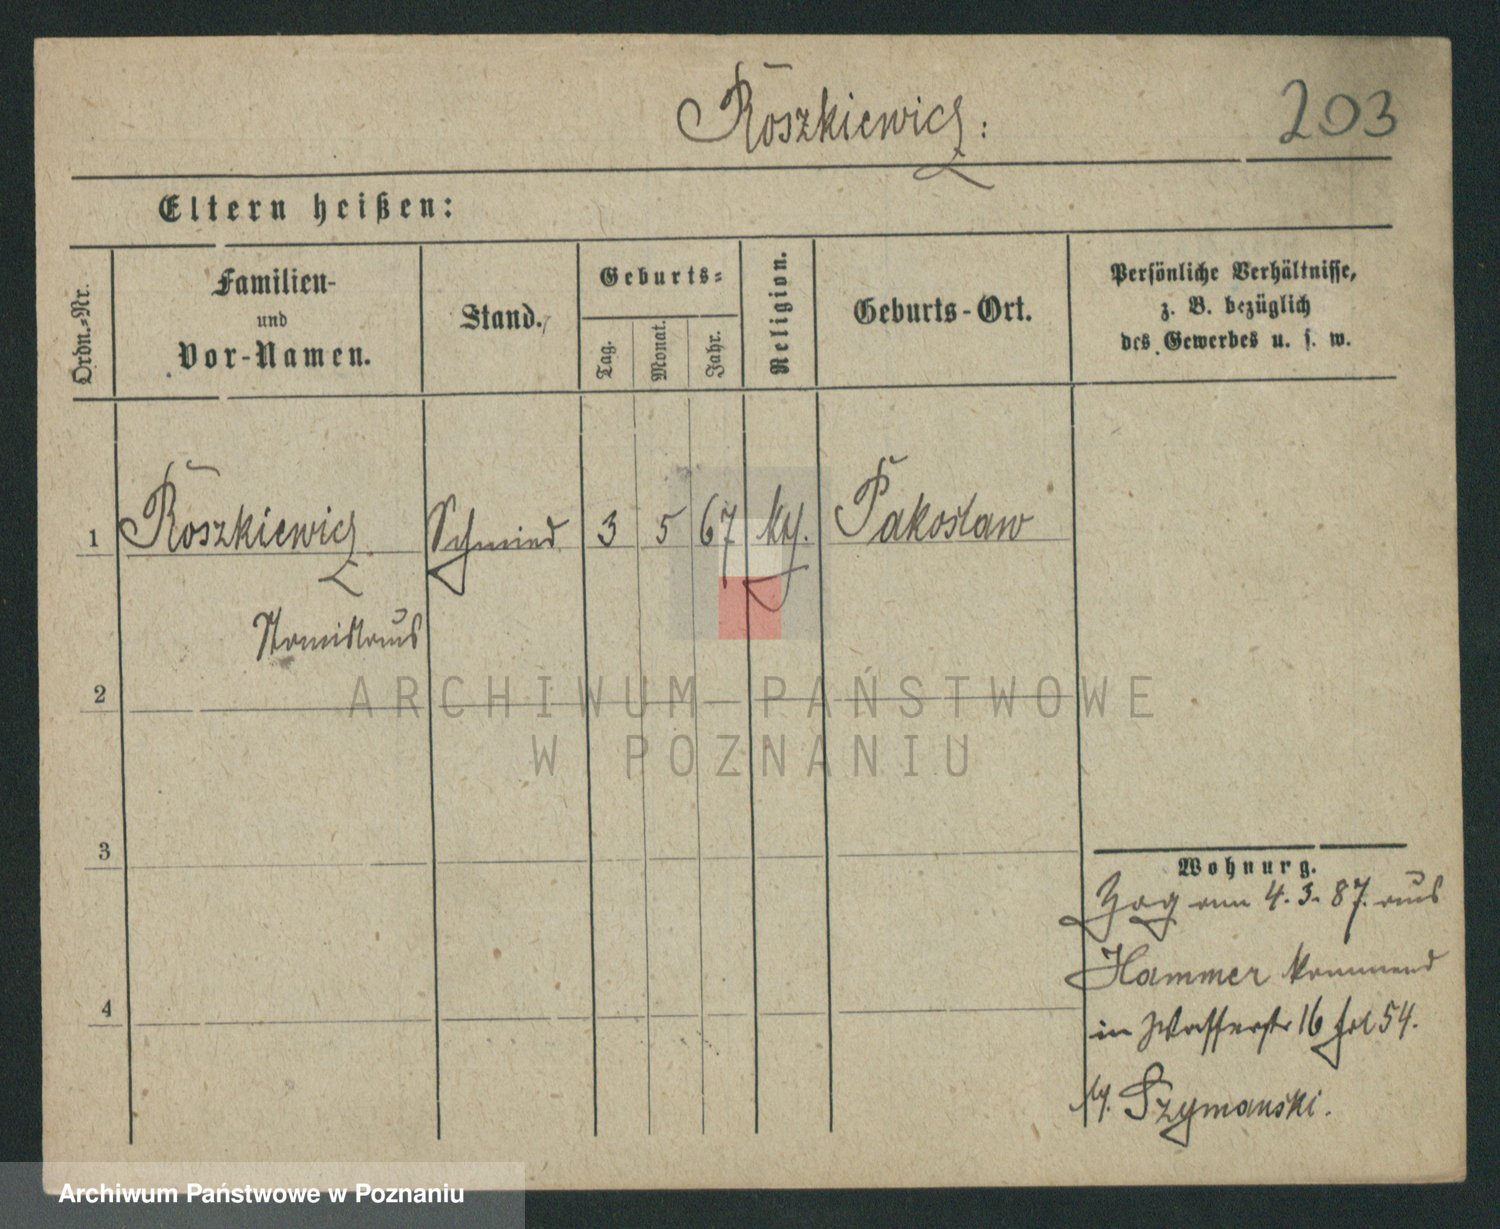 Roszkiewicz:
203
Eltern heißen:
Ordn.-Nr.
Familien-
und
Vor-Namen.
Stand.
Geburts-
Tag.
Monat.
Jahr.
Religion.
Geburts-Ort.
Persönliche Verhältnisse,
z. B. bezüglich
des Gewerbes u. s. w.
1 Roszkiewicz Schmied 3 5 67 kth. Pakosław
Stanislaus
2
3
4
Wohnung.
Zog am 4. 3. 87. aus
Hammer kommend
in Wasserstr 16 54.
Szymanski.
ARCHIWUM PAŃSTWOWE
W POZNANIU
Archiwum Państwowe w Poznaniu